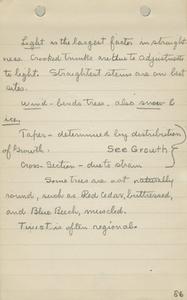 Light is the largest factor in straight-
ness. Crooked trunks are due to adjustments
to light. Straightest stems are on best
sites.
Wind - bends trees. also snow &
ice.
Taper - determined by distribution
of Growth. See Growth
Cross-Section - due to strain
Some trees are not naturally
round, such as Red Cedar, buttressed,
and Blue Beech, muscled.
Twist is often regional.
56